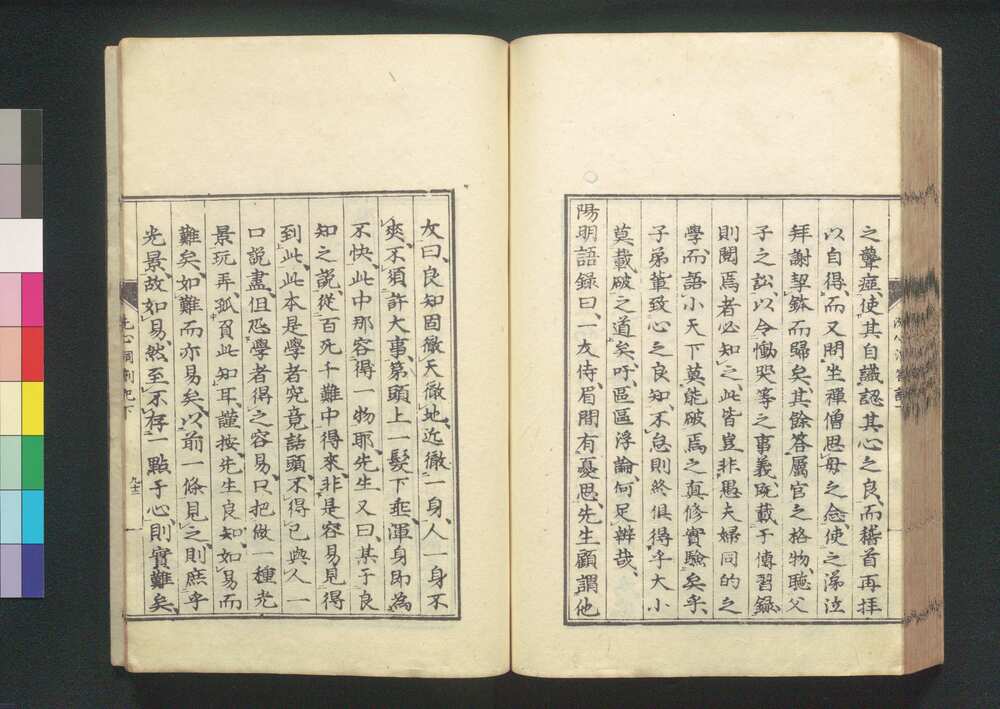 之聾瘂使其自識認其心之良、而稽首再拜
以自得、而又問坐禪僧思母之念、使之涕泣
拜謝挈鉢而歸矣、其餘答屬官之格物、聽父
子之訟、以令慟哭等之事義、既載于傳習錄
則閱焉者必知之、此皆豈非愚夫婦同的之
學、而語小天下莫能破焉之真修實驗矣乎、
子弟輩致心之良知、不息則終俱得乎大小
莫載破之道矣、吁、區區浮論、何足辨哉、
陽明語錄曰、一友侍、眉間有憂思、先生顧謂他
友曰、良知固徹天徹地、近徹一身、人一身不
爽、不須許大事、第頭上一髮下垂、渾身即為
不快、此中那容得一物耶、先生又曰、某于良
知之說、從百死千難中得來、非是容易見得
到此、此本是學者究竟話頭、不得已與人一
口說盡、但恐學者得之容易、只把做一種光
景玩弄、孤負此知耳、謹按、先生良知、如易而
難矣、如難而亦易矣、以前一條見之、則庶乎
光景、故如易、然至不存一點于心、則實難矣、
洗心洞劄記下
九十三